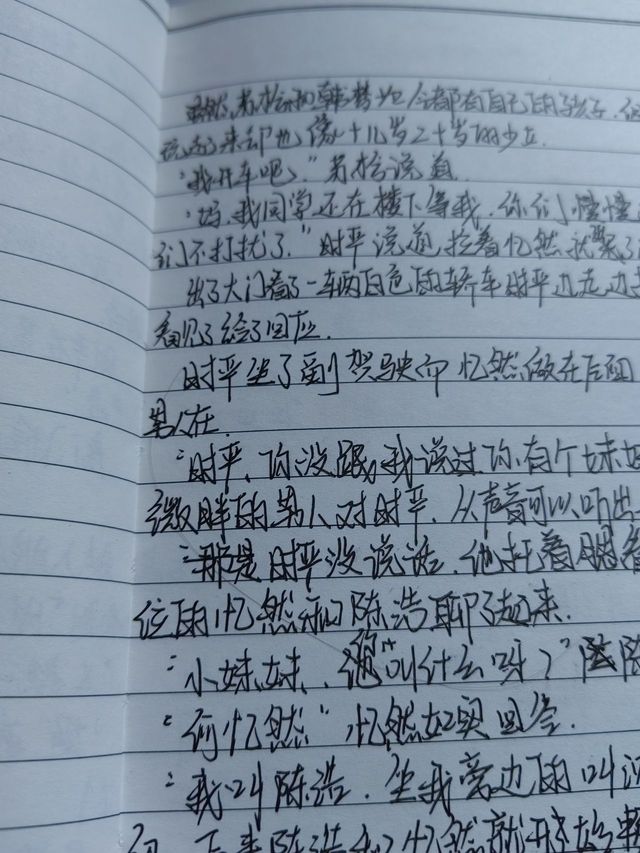 虽然苏松和韩梦如今都有自己的孩子,但
玩起来却也像十几岁二十岁的少立.
"我开车吧."苏松说道
"妈,我同学还在楼下等我,你们慢慢
们不打扰了."时平说道,拉着忆然就
出了大门看了一车两白色的轿车时平边走边
看见了给了回应.
时平坐了副驾驶而忆然做在后面
男人在.
"时平,你没跟我说过你有个妹妹
微胖的男人对时平,从声音可以听出
时平没说话.他托着腮看
位的忆然和陈浩聊了起来.
"小妹妹,你叫什么呀?"陈
"何忆然"忆然如实回答.
"我叫陈浩,坐我旁边的叫